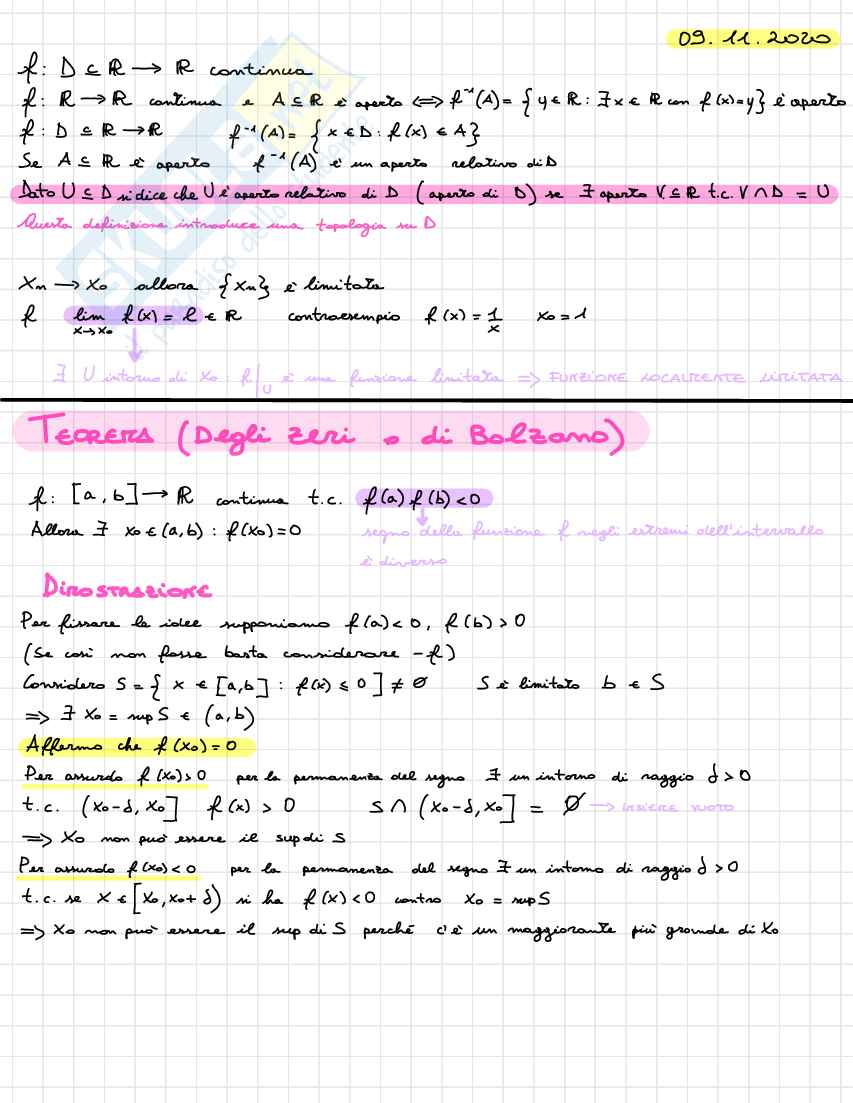 09.11.2020
f: D ⊆ ℝ → ℝ continua
f: ℝ → ℝ continua e A ⊆ ℝ è aperto ⟺ f⁻¹(A) = { y ∈ ℝ : ∃ x ∈ ℝ con f(x) = y } è aperto
f: D ⊆ ℝ → ℝ f⁻¹(A) = { x ∈ D : f(x) ∈ A }
Se A ⊆ ℝ è aperto f⁻¹(A) è un aperto relativo di D
Dato U ⊆ D si dice che U è aperto relativo di D (aperto di D) se ∃ aperto V ⊆ ℝ t.c. V ∩ D = U
Questa definizione introduce una topologia su D
Xn → X0 allora {Xn} è limitata
f lim x→x0 f(x) = l ∈ ℝ controesempio f(x) = 1/x x0 = 1
∃ U intorno di x0 : f|U è una funzione limitata ⇒ FUNZIONE LOCALMENTE LIMITATA
TEOREMA (Degli zeri o di Bolzano)
f: [a, b] → ℝ continua t.c. f(a) f(b) < 0
Allora ∃ x0 ∈ (a, b) : f(x0) = 0 segno della funzione f negli estremi dell'intervallo
è diverso
DIMOSTRAZIONE
Per fissare le idee supponiamo f(a) < 0, f(b) > 0
(Se così non fosse basta considerare -f)
Considero S = { x ∈ [a,b] : f(x) ≤ 0 ] ≠ ∅ S è limitato b ∈ S
⇒ ∃ x0 = sup S ∈ (a, b)
Affermo che f(x0) = 0
Per assurdo f(x0) > 0 per la permanenza del segno ∃ un intorno di raggio δ > 0
t.c. (x0-δ, x0] f(x) > 0 S ∩ (x0-δ, x0] = ∅ → INSIEME VUOTO
⇒ x0 non può essere il sup di S
Per assurdo f(x0) < 0 per la permanenza del segno ∃ un intorno di raggio δ > 0
t.c. se x ∈ [x0, x0+δ) si ha f(x) < 0 contro x0 = sup S
⇒ x0 non può essere il sup di S perché c'è un maggiorante più grande di x0
SKUOLA.net
il paradiso dello studente